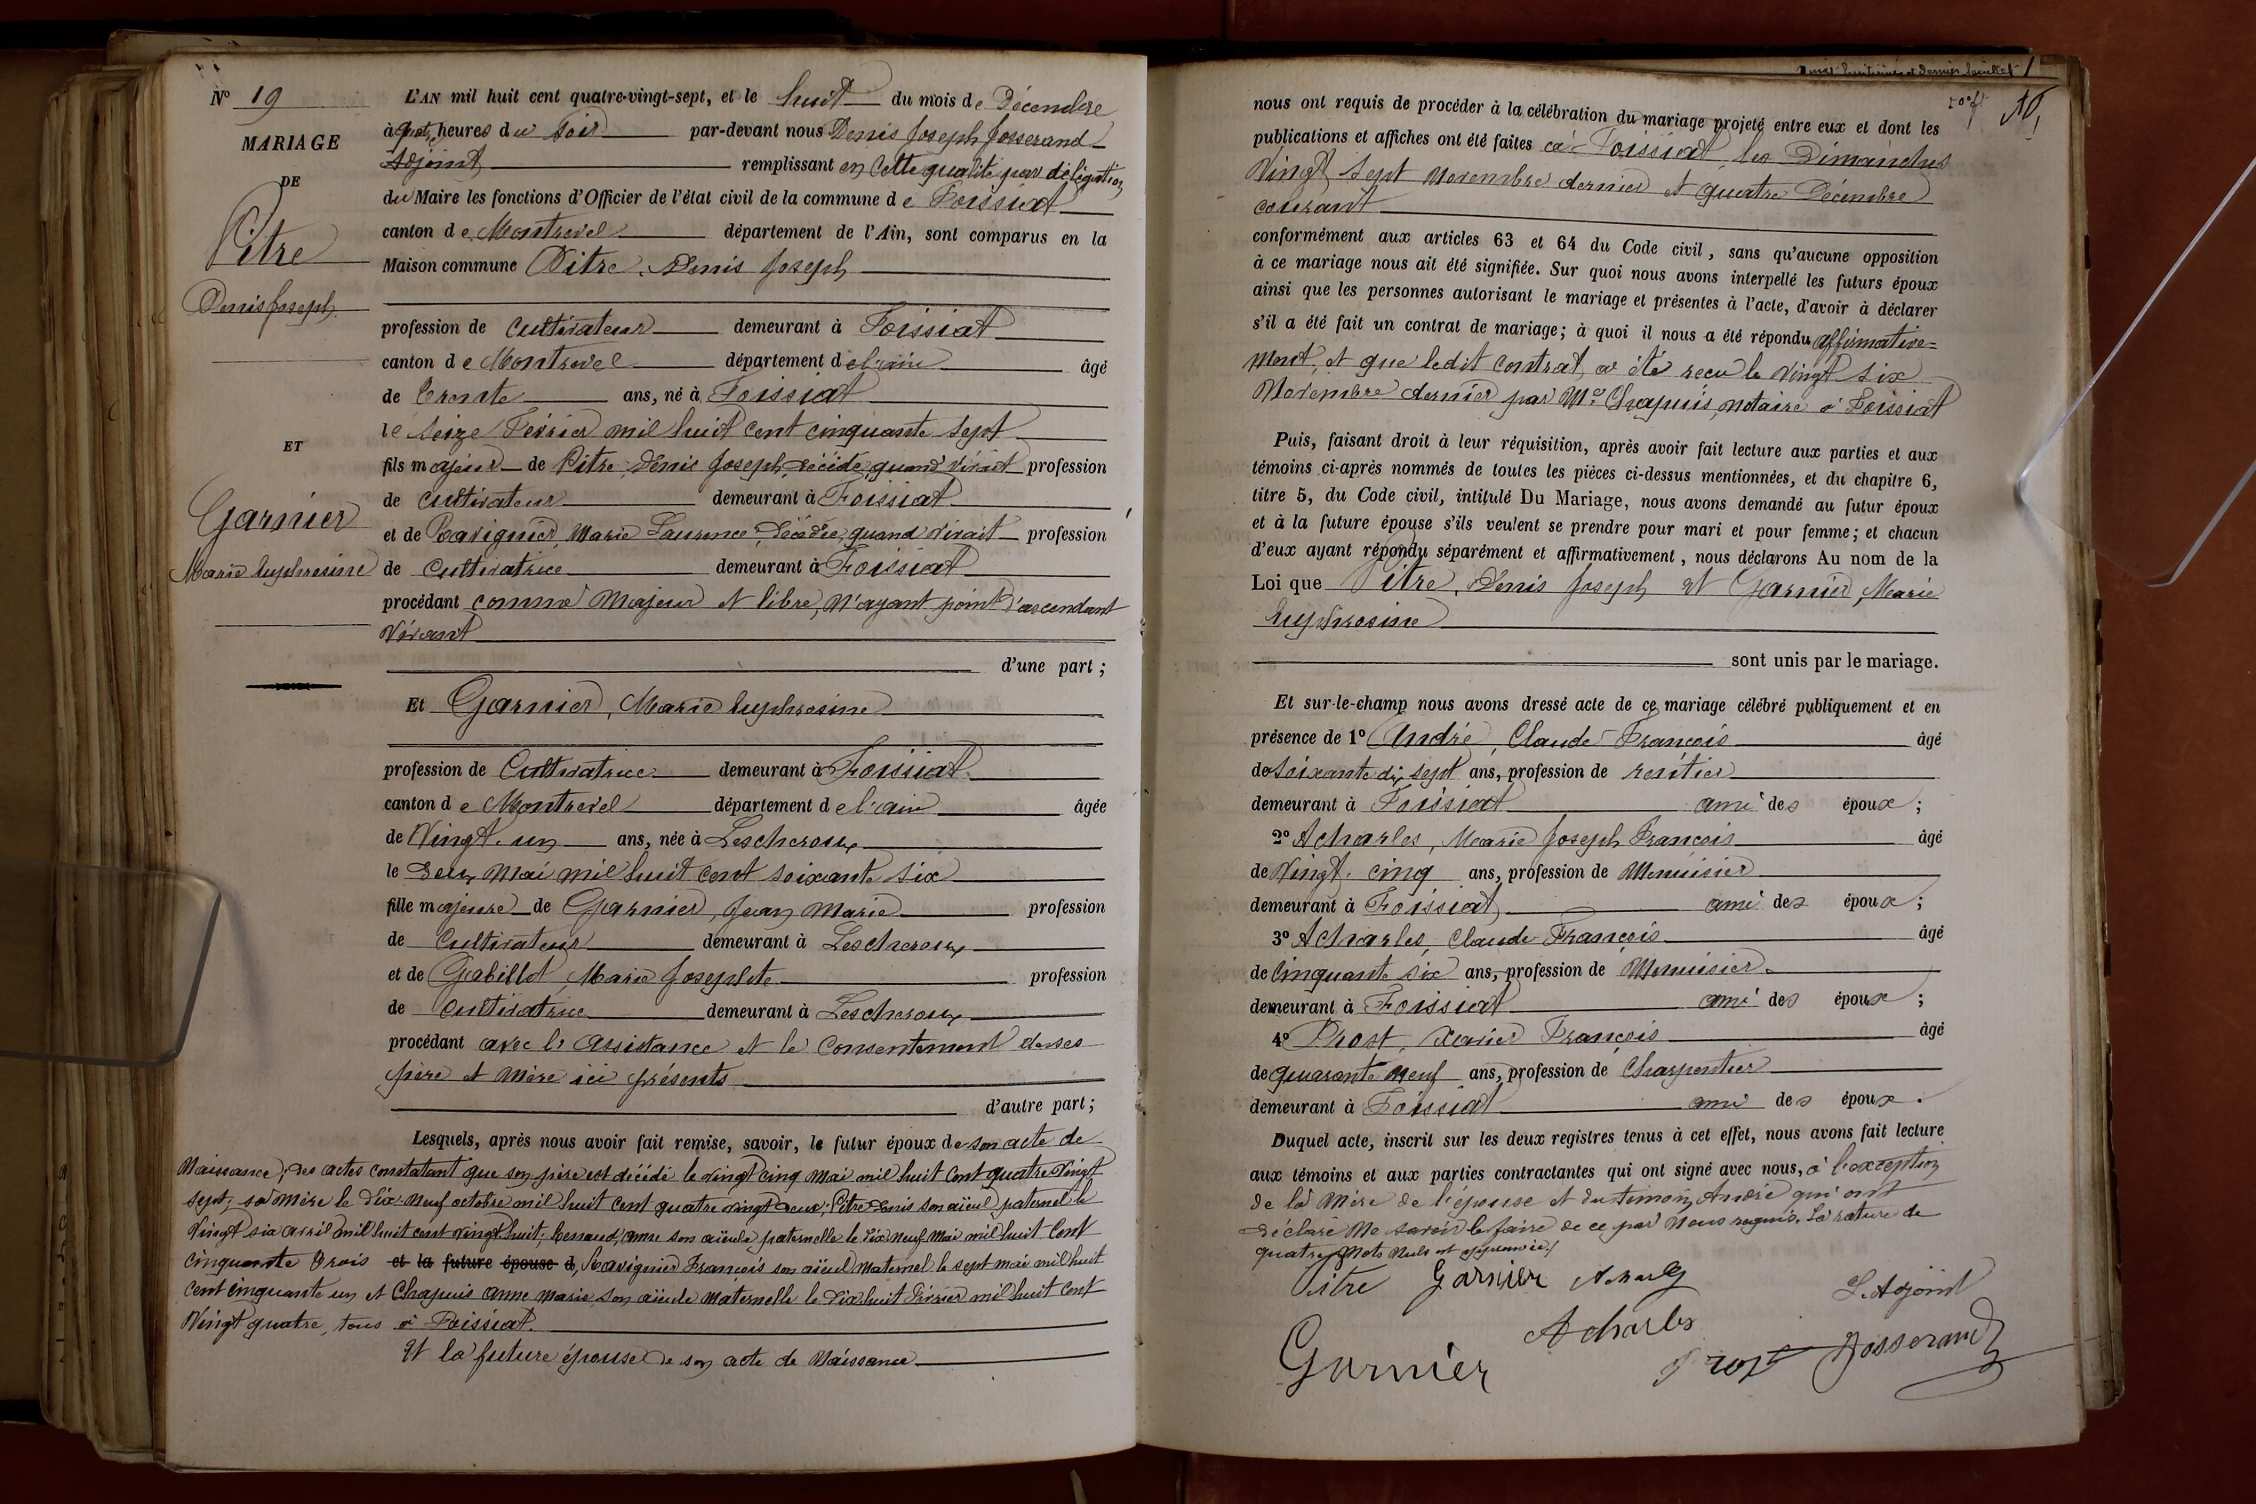 Nº 19
MARIAGE
DE
Pitre
Denis Joseph
ET
Garnier
Marie Euphrosine
L'AN mil huit cent quatre-vingt-sept, et le huit du mois de Décembre
à quatre heures du soir par-devant nous Denis Joseph Josserand
Adjoint remplissant en cette qualité par délégation
du Maire les fonctions d'Officier de l'état civil de la commune de Foissiat
canton de Montrevel département de l'Ain, sont comparus en la
Maison commune Pitre, Denis Joseph
profession de cultivateur demeurant à Foissiat
canton de Montrevel département de l'ain âgé
de trente ans, né à Foissiat
le seize Février mil huit cent cinquante sept
fils majeur de Pitre, Denis Joseph, décédé, quand vivait profession
de cultivateur demeurant à Foissiat
et de Ravignier, Marie Laurence, décédée, quand vivait profession
de cultivatrice demeurant à Foissiat
procédant comme majeur et libre, n'ayant point d'ascendant
vivant
d'une part ;
Et Garnier, Marie Euphrosine
profession de Cultivatrice demeurant à Foissiat
canton de Montrevel département de l'ain âgée
de Vingt-un ans, née à Lescheroux
le deux Mai mil huit cent soixante six
fille majeure de Garnier, Jean Marie profession
de cultivateur demeurant à Lescheroux
et de Gabillet, Marie Josephte profession
de cultivatrice demeurant à Lescheroux
procédant avec l'assistance et le consentement de ses
père et mère ici présents
d'autre part ;
Lesquels, après nous avoir fait remise, savoir, le futur époux de son acte de
Naissance ; des actes constatant que son père est décédé le vingt cinq Mai mil huit cent quatre vingt
sept ; sa mère le dix-neuf octobre mil huit cent quatre vingt deux ; Pitre Denis son aïeul paternel le
vingt six avril mil huit cent vingt huit ; Renaud, Anne son aïeule paternelle le dix neuf Mai mil huit cent
cinquante trois et la future épouse d, Ravignier François son aïeul Maternel le sept mai mil huit
cent cinquante un et Chapuis Anne Marie son aïeule Maternelle le dix huit Février mil huit cent
Vingt quatre, tous à Foissiat.
Et la future épouse de son acte de Naissance
nous ont requis de procéder à la célébration du mariage projeté entre eux et dont les
publications et affiches ont été faites à Foissiat, les Dimanches
Vingt sept Novembre dernier et quatre Décembre
courant
conformément aux articles 63 et 64 du Code civil, sans qu'aucune opposition
à ce mariage nous ait été signifiée. Sur quoi nous avons interpellé les futurs époux
ainsi que les personnes autorisant le mariage et présentes à l'acte, d'avoir à déclarer
s'il a été fait un contrat de mariage ; à quoi il nous a été répondu affirmative=
ment, et que ledit contrat a été reçu le Vingt six
Novembre dernier par Me Chapuis, notaire à Foissiat
Puis, faisant droit à leur réquisition, après avoir fait lecture aux parties et aux
témoins ci-après nommés de toutes les pièces ci-dessus mentionnées, et du chapitre 6,
titre 5, du Code civil, intitulé Du Mariage, nous avons demandé au futur époux
et à la future épouse s'ils veulent se prendre pour mari et pour femme ; et chacun
d'eux ayant répondu séparément et affirmativement, nous déclarons Au nom de la
Loi que Pitre, Denis Joseph et Garnier, Marie
Euphrosine
sont unis par le mariage.
Et sur-le-champ nous avons dressé acte de ce mariage célébré publiquement et en
présence de 1º André, Claude François âgé
de soixante dix sept ans, profession de rentier
demeurant à Foissiat ami des époux ;
2º Acharles, Marie Joseph François âgé
de Vingt-cinq ans, profession de Menuisier
demeurant à Foissiat ami des époux ;
3º Acharles, Claude François âgé
de cinquante six ans, profession de Menuisier
demeurant à Foissiat ami des époux ;
4º Prost, Xavier François âgé
de quarante neuf ans, profession de Charpentier
demeurant à Foissiat ami des époux.
Duquel acte, inscrit sur les deux registres tenus à cet effet, nous avons fait lecture
aux témoins et aux parties contractantes qui ont signé avec nous, à l'exception
de la Mère de l'épouse et du témoin André qui ont
déclaré Ne savoir le faire de ce par Nous requis. La rature de
quatre Mots Nuls est approuvée
Pitre Garnier Acharles
L'Adjoint
Acharles
Garnier Prost Josserand